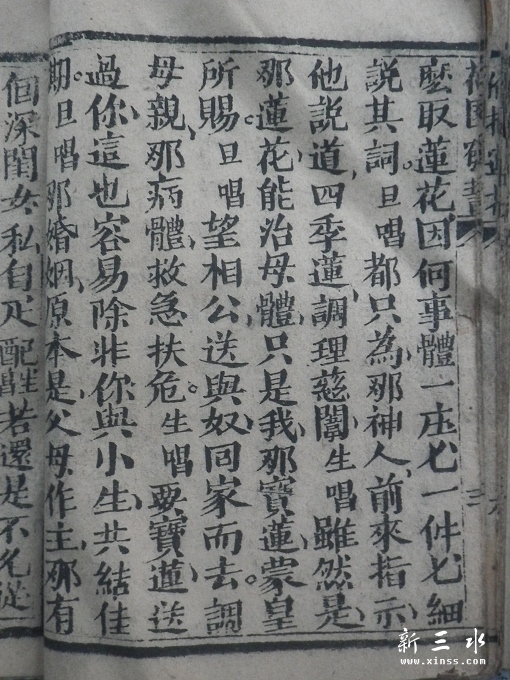 麽取蓮花因何事體一庄匕一件匕細
說其詞旦唱都只為那神人前來指示
他説道四季蓮調理慈闈生唱雖然是
那蓮花能治母體只是我那寶蓮蒙皇
所賜旦唱望相公送與奴囘家而去調
母親那病體救急扶危生唱要寶蓮送
過你這也容易除非你與小生共結佳
期旦唱那婚姻原本是父母作主那有
個深閨女私自疋配生唱若還是不允從
三
新三水
www.xinss.com